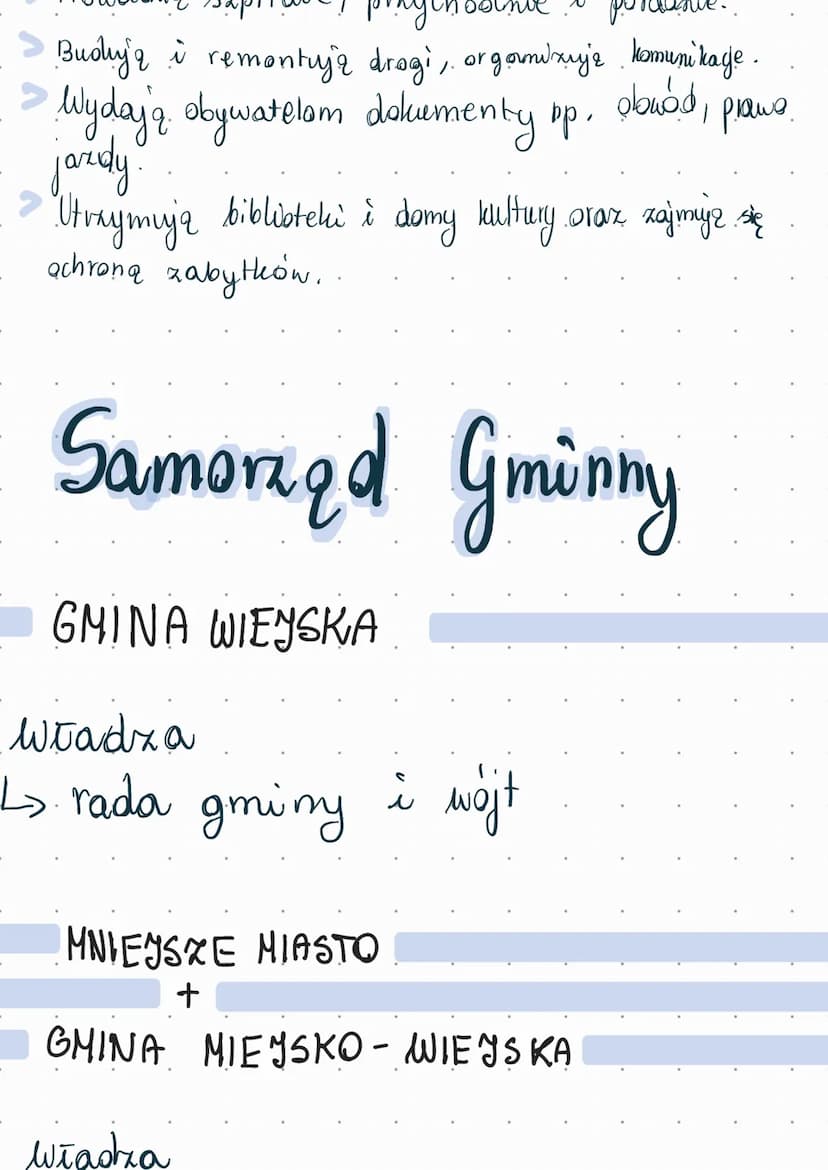 szpitale, przychodnie i poradnie.
> Budują i remontują drogi, organizują komunikaje.
> Wydają obywatelom dokumenty np. dowód, prawo
jazdy.
> Utrzymują biblioteki i domy kultury oraz zajmują się
ochroną zabytków.
Samorząd Gminny
GMINA WIEJSKA
władza
↳ rada gminy i wójt
MNIEJSZE MIASTO
+
GMINA MIEJSKO-WIEJSKA
władza